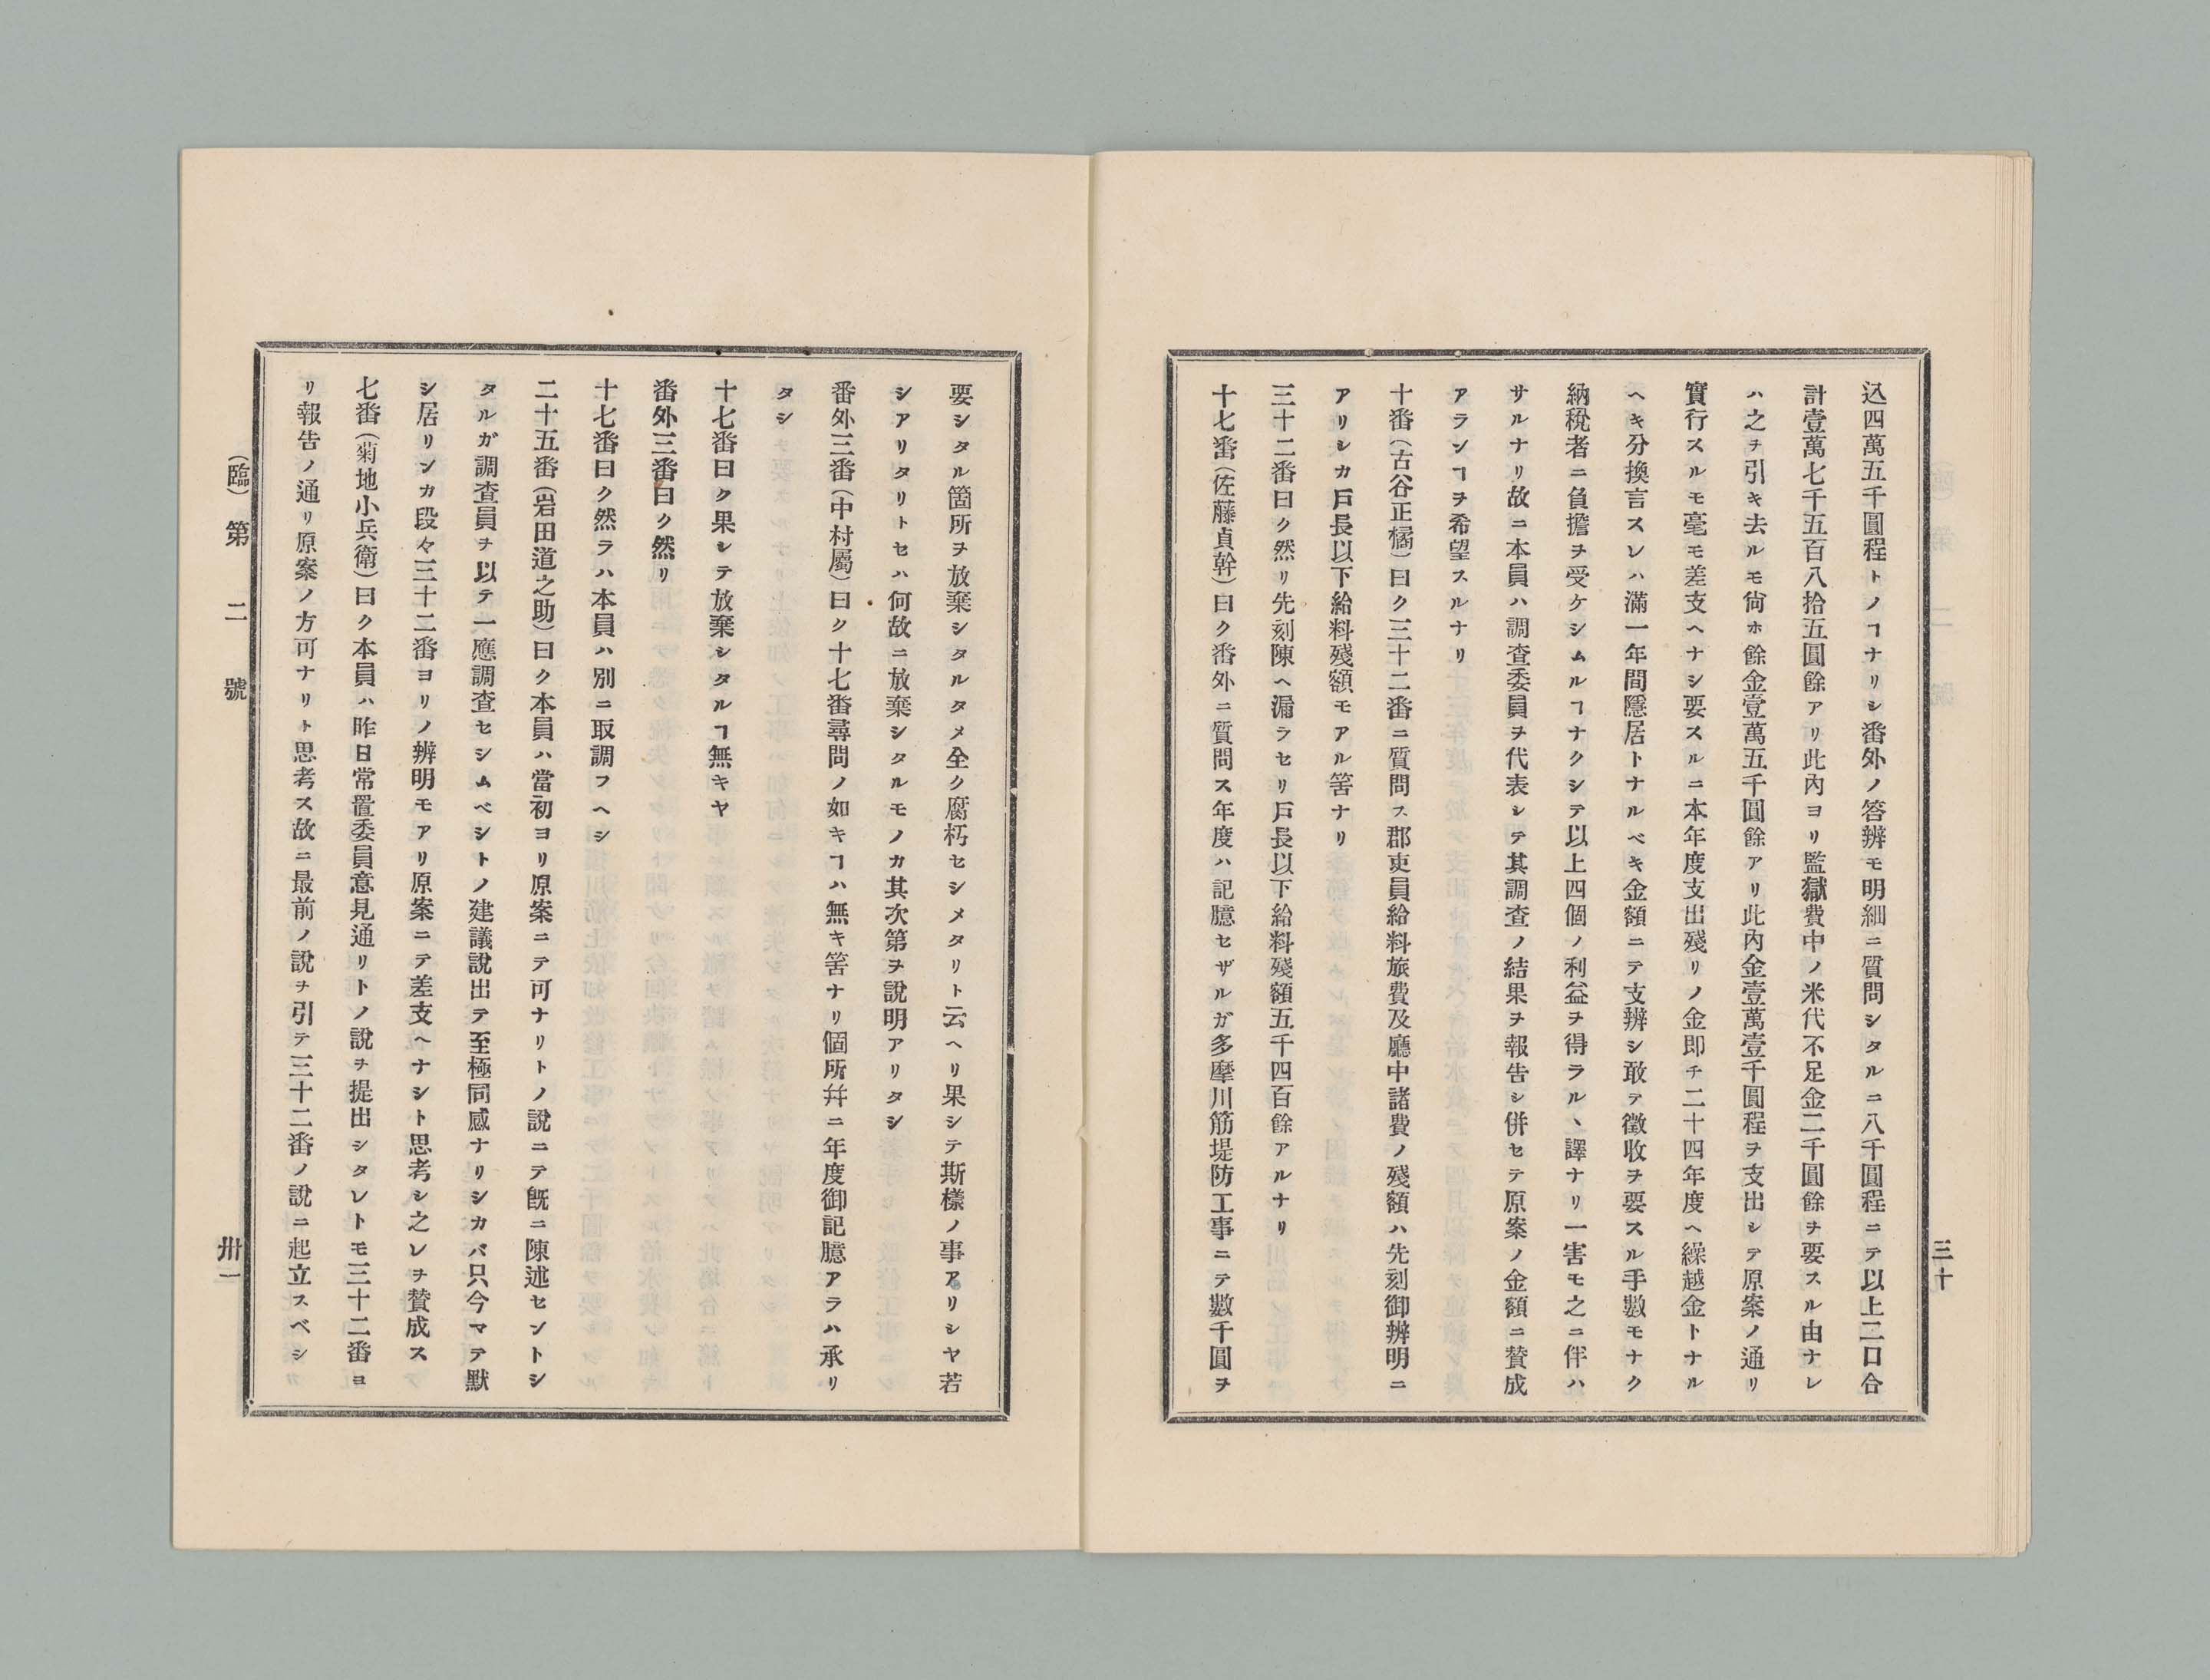 込四萬五千圓程トノヿナリシ番外ノ答辨モ明細ニ質問シタルニ八千圓程ニテ以上二口合
計壹萬七千五百八拾五圓餘アリ此內ヨリ監獄費中ノ米代不足金二千圓餘ヲ要スル由ナレ
ハ之ヲ引キ去ルモ尙ホ餘金壹萬五千圓餘アリ此內金壹萬壹千圓程ヲ支出シテ原案ノ通リ
實行スルモ毫モ差支ヘナシ要スルニ本年度支出殘リノ金卽チ二十四年度ヘ繰越金トナル
ヘキ分換言スレハ滿一年間隱居トナルベキ金額ニテ支辨シ敢テ徵收ヲ要スル手數モナク
納稅者ニ負擔ヲ受ケシムルヿナクシテ以上四個ノ利益ヲ得ラルヽ譯ナリ一害モ之ニ伴ハ
サルナリ故ニ本員ハ調査委員ヲ代表シテ其調査ノ結果ヲ報告シ併セテ原案ノ金額ニ賛成
アランヿヲ希望スルナリ
十番（古谷正橘）曰ク三十二番ニ質問ス郡吏員給料旅費及廳中諸費ノ殘額ハ先刻御辨明ニ
アリシカ戶長以下給料殘額モアル筈ナリ
三十二番曰ク然リ先刻陳ヘ漏ラセリ戶長以下給料殘額五千四百餘アルナリ
十七番（佐藤貞幹）曰ク番外ニ質問ス年度ハ記臆セザルガ多摩川筋堤防工事ニテ數千圓ヲ
三十
要シタル箇所ヲ放棄シタルタメ全ク腐朽セシメタリト云ヘリ果シテ斯樣ノ事アリシヤ若
シアリタリトセハ何故ニ放棄シタルモノカ其次第ヲ說明アリタシ
番外三番（中村屬）曰ク十七番尋問ノ如キヿハ無キ筈ナリ個所幷ニ年度御記臆アラハ承リ
タシ
十七番曰ク果シテ放棄シタルヿ無キヤ
番外三番曰ク然リ
十七番曰ク然ラハ本員ハ別ニ取調フヘシ
二十五番（岩田道之助）曰ク本員ハ當初ヨリ原案ニテ可ナリトノ說ニテ旣ニ陳述セントシ
タルガ調査員ヲ以テ一應調査セシムベシトノ建議說出テ至極同感ナリシカバ只今マテ默
シ居リンカ段々三十二番ヨリノ辨明モアリ原案ニテ差支ヘナシト思考シ之レヲ賛成ス
七番（菊地小兵衛）曰ク本員ハ昨日常置委員意見通リトノ說ヲ提出シタレトモ三十二番ヨ
リ報告ノ通リ原案ノ方可ナリト思考ス故ニ最前ノ說ヲ引テ三十二番ノ說ニ起立スベシ
（臨）第二號
卅一